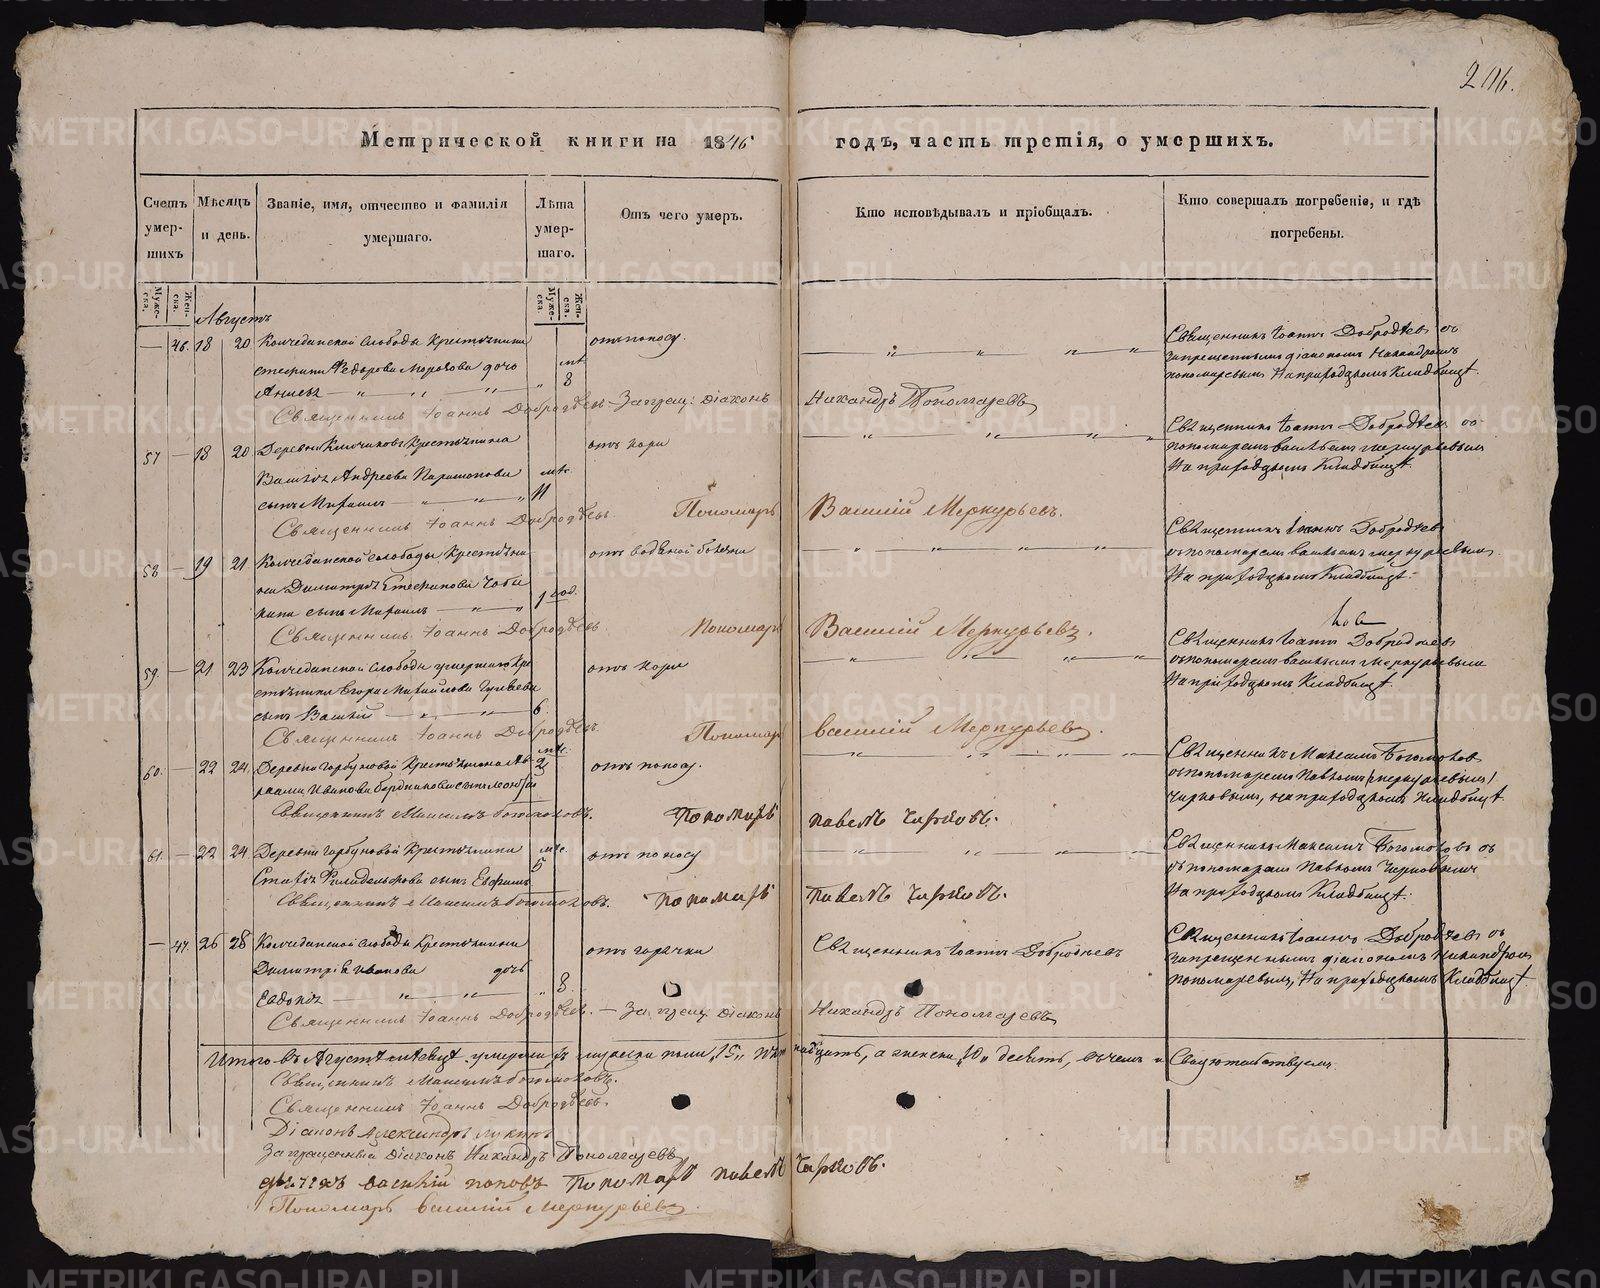 206.
Метрической книги на 1846 годъ, часть третія, о умершихъ.
Счетъ умер-шихъ
Мѣсяцъ и день.
Званіе, имя, отчество и фамилія умершаго.
Лѣта умер-шаго.
Отъ чего умеръ.
Кто исповѣдывалъ и пріобщалъ.
Кто совершалъ погребеніе, и гдѣ погребены.
Муже-ска.
Жен-ска.
Муже-ска.
Жен-ска.
Августъ
— 46. 18 20 Колчеданской слободы крестьянина отъ поносу. Священникъ Іоаннъ Добродѣевъ съ
Федорова дочь мѣ. запрещеннымъ діакономъ Никандромъ
8 пономаревымъ На приходскомъ Кладбищѣ.
Священникъ Іоаннъ Добродѣевъ. Запрещ: діаконъ Никандръ Пономаревъ
57 — 18 20 Деревни крестьянина отъ кори Священникъ Іоаннъ Добродѣевъ со
Андреева мѣс. пономаремъ васильемъ меркурьевымъ
сынъ Михаилъ 11 На приходскомъ Кладбищѣ.
Священникъ Іоаннъ Добродѣевъ Пономарь Василій Меркурьевъ.
58 — 19 21 Колчеданской слободы крестьяни- отъ водяной болезни Священникъ Іоаннъ Добродѣевъ
на Димитрія Стефанова съ пономаремъ васильемъ меркурьевымъ
сынъ Михаилъ 1 год. На приходскомъ Кладбищѣ.
Священникъ Іоаннъ Добродѣевъ Пономарь Василій Меркурьевъ.
59. — 21 23 Колчеданской слободы умершаго кре- отъ кори Священникъ Іоаннъ Добродѣевъ
стьянина Егора Михайлова съ пономаремъ васильемъ Меркурьевымъ
сынъ Василій 6. На приходскомъ Кладбищѣ.
Священникъ Іоаннъ Добродѣевъ Пономарь василій Меркурьевъ.
60. — 22 24 Деревни Горбуновой Крестьянина Ав- мѣс. 2 отъ поносу. Священникъ Максимъ Богомоловъ
раама Иванова сынъ съ пономаремъ Павломъ (меркурьевымъ)
Чирковымъ, на приходскомъ Кладбищѣ.
Священникъ Максимъ Богомоловъ. Пономарь павелъ Чирковъ.
61. — 22 24 Деревни Горбуновой Крестьянина мѣс. 5 отъ поносу Священникъ Максимъ Богомоловъ съ
Филадельфова сынъ Евфимъ съ пономаремъ Павломъ Чирковымъ
На приходскомъ Кладбищѣ.
Священникъ Максимъ Богомоловъ. Пономарь Павелъ Чирковъ.
— 47. 26 28 Колчеданской слободы Крестьянина отъ горячки Священникъ Іоаннъ Добродѣевъ Священникъ Іоаннъ Добродѣевъ съ
Димитрія Иванова дочь запрещеннымъ діакономъ Никандромъ
Евдокія 8. пономаревымъ, На приходскомъ Кладбищѣ.
Священникъ Іоаннъ Добродѣевъ. — Запрещ: діаконъ Никандръ Пономаревъ
Итого въ Августѣ мѣсяцѣ умерло мужеска пола, 15, пятнадцать, а женска, 10, десять, въ чемъ и Свидѣтельствуемъ.
Священникъ Максимъ Богомоловъ.
Священникъ Іоаннъ Добродѣевъ.
Діаконъ Александръ
Запрещенный діаконъ Никандръ Пономаревъ
дьячекъ василій поповъ Пономарь павелъ Чирковъ.
Пономарь василій Меркурьевъ.